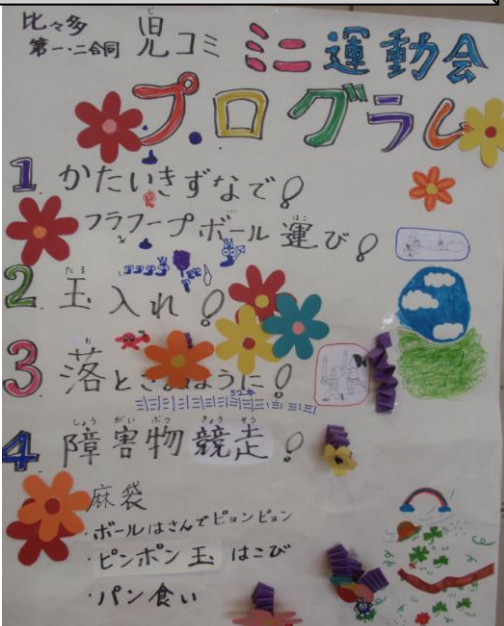 比々多
第一・二合同 児コミ ミニ運動会
プログラム
1 かたいきずなで!
フラフープボール運び!
2. 玉入れ!
3 落と
ように!
4 障害物競走!
麻袋
・ボールはさんでピョンピョン
・ピンポン玉はこび
・パン食い